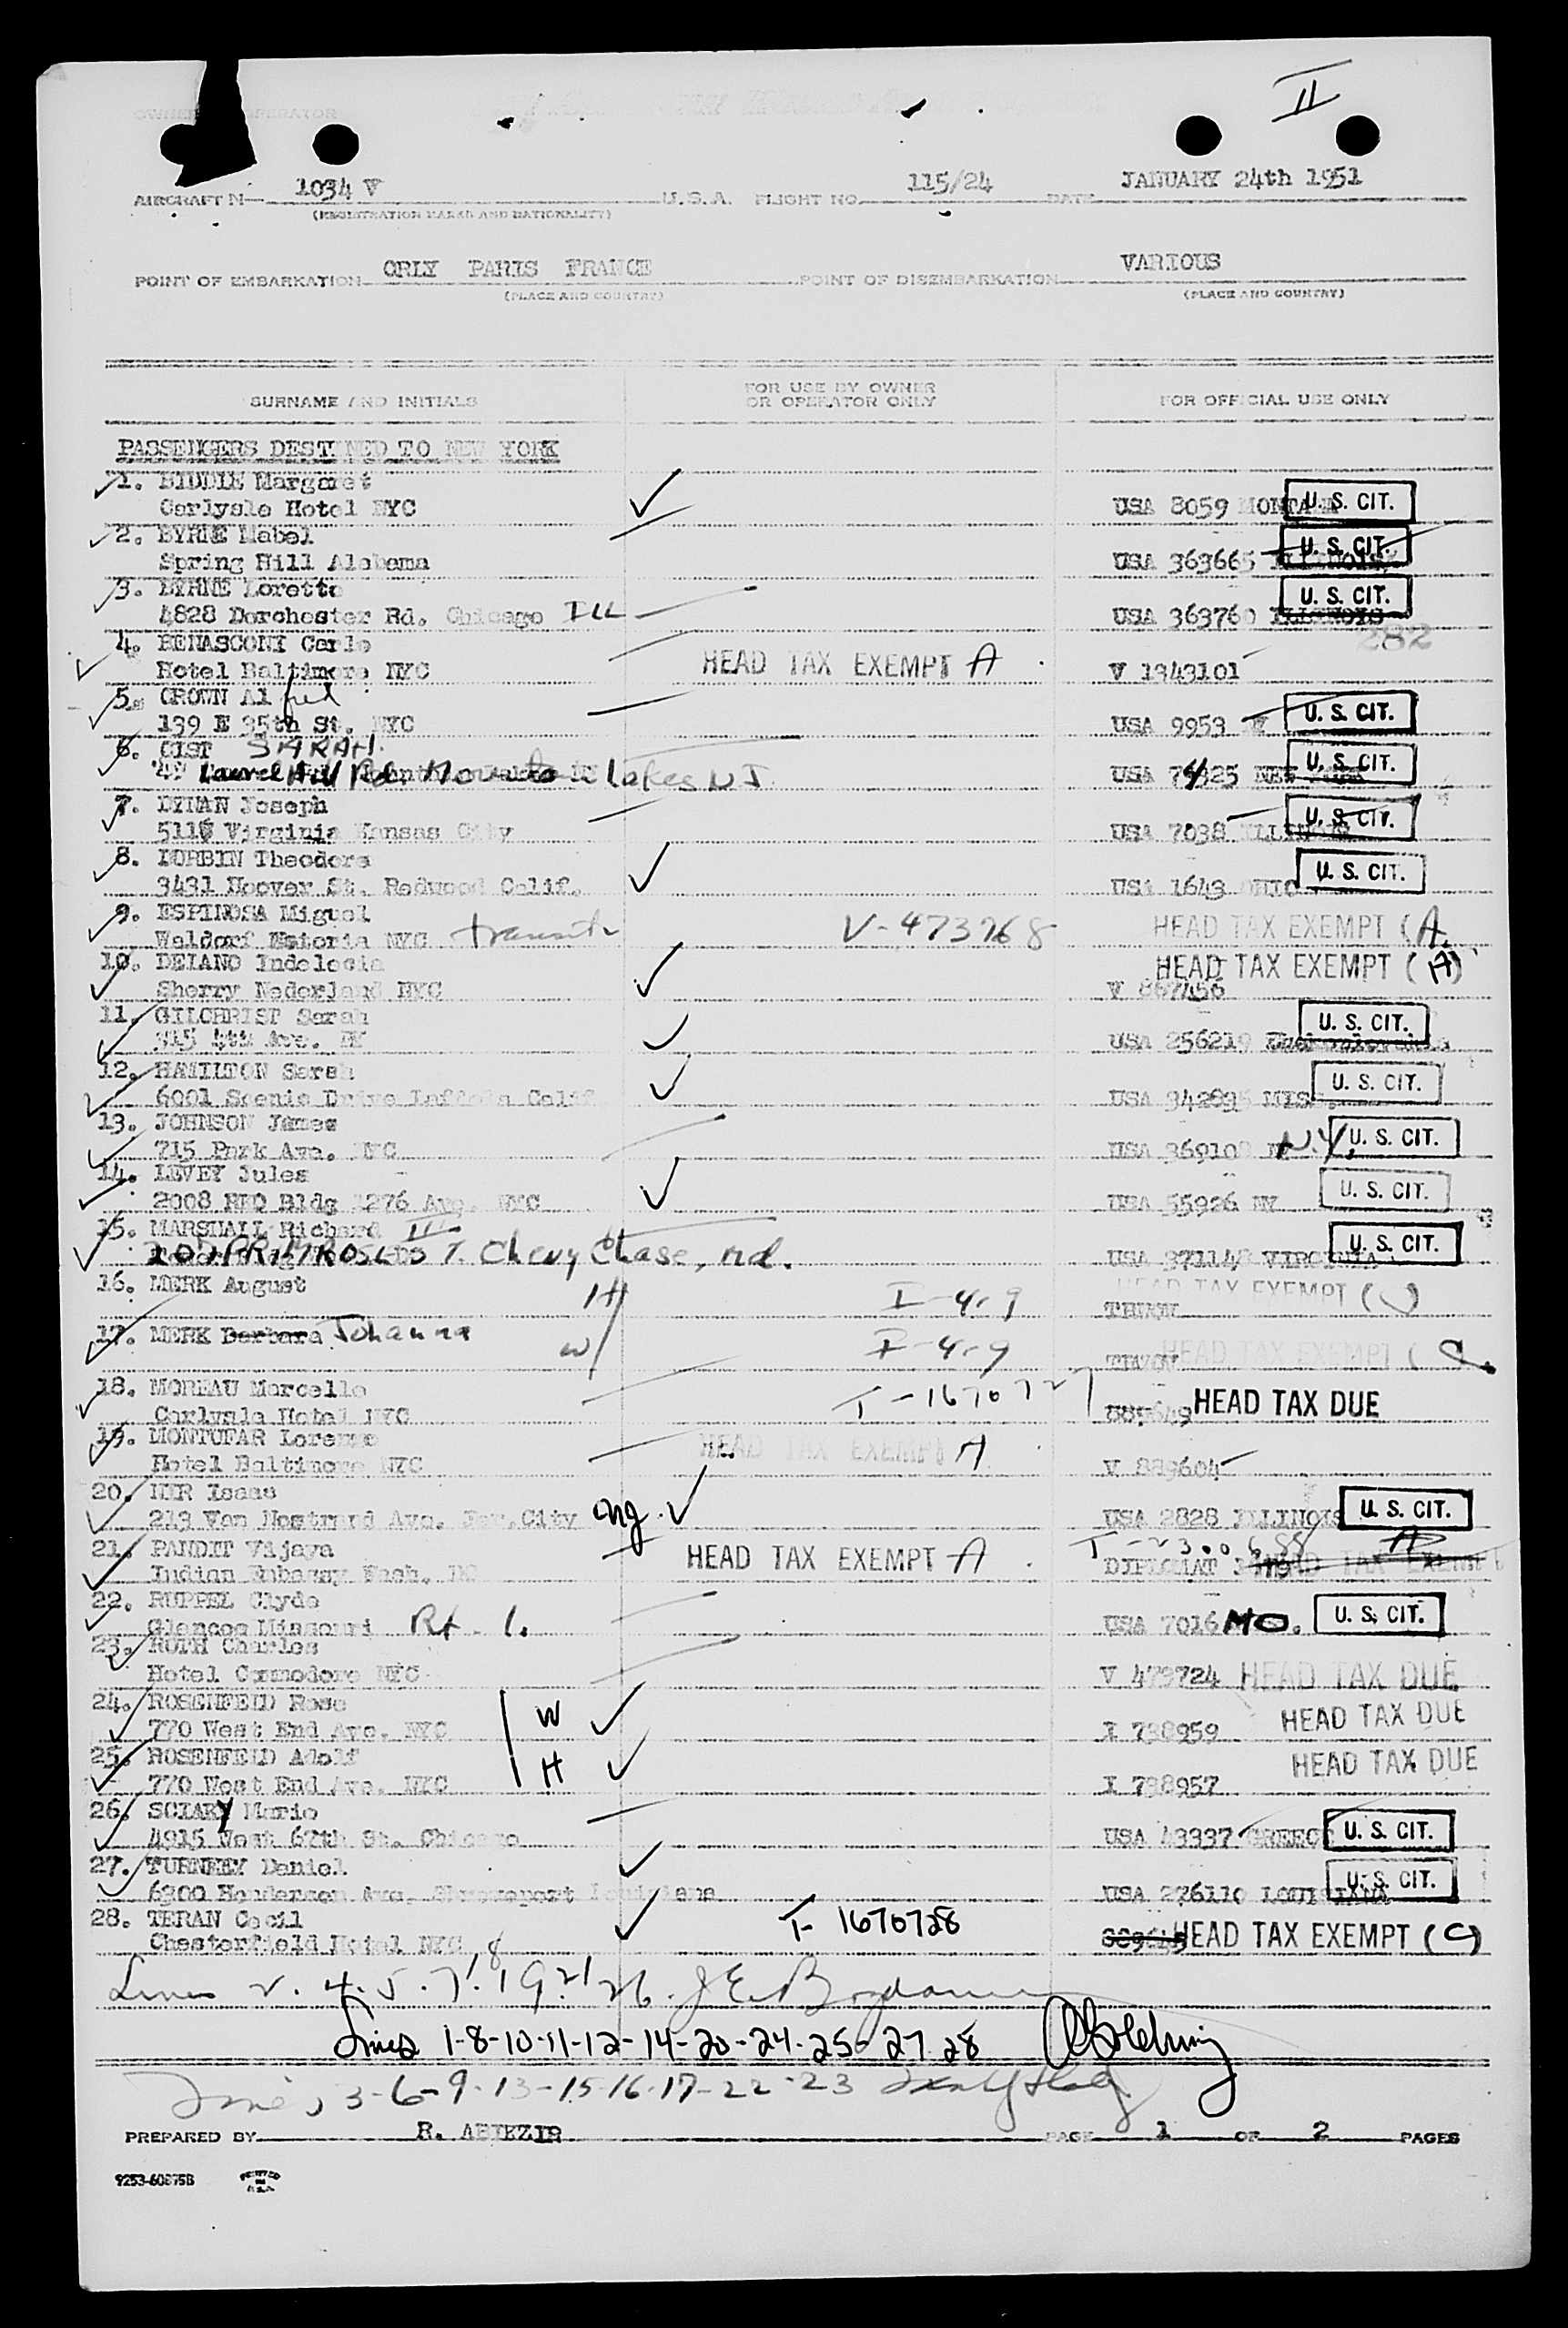 II
OWNER OPERATOR
AIRCRAFT N— 1034 V U.S.A. FLIGHT NO. 115/24 DATE JANUARY 24th 1951
(REGISTRATION MARKS AND NATIONALITY)
POINT OF EMBARKATION ORLY PARIS FRANCE POINT OF DISEMBARKATION VARIOUS
(PLACE AND COUNTRY) (PLACE AND COUNTRY)
SURNAME AND INITIALS FOR USE BY OWNER OR OPERATOR ONLY FOR OFFICIAL USE ONLY
PASSENGERS DESTINED TO NEW YORK
1. BIDDLE Margaret
Carlysle Hotel NYC USA 8059 MONTANA U. S. CIT.
2. BYRNE Mabel
Spring Hill Alabama USA 363665 ILLINOIS U. S. CIT.
3. BYRNE Loretto
4828 Dorchester Rd. Chicago ILL USA 363760 ILLINOIS U. S. CIT.
282
4. BENASCONI Carlo
Hotel Baltimore NYC HEAD TAX EXEMPT A V 1343101
5. CROWN Alfred
139 E 35th St. NYC USA 9953 U. S. CIT.
6. CIST SARAH.
49 Laurel Hill Rd. Mountain Lakes NJ USA 74325 NEW U. S. CIT.
7. DYMAN Joseph
Virginia Kansas City USA 7038 ILLINOIS U. S. CIT.
8. DORBIN Theodore
3431 Hoover St. Redwood Calif. USA 1643 OHIO U. S. CIT.
9. ESPINOSA Miguel
Waldorf Astoria NYC transit V-473768 HEAD TAX EXEMPT (A.
10. DELANO Indelecia HEAD TAX EXEMPT (A)
Sherry Nederland NYC V 867456
11. GILCHRIST Sarah
315 4th Ave. NY USA 256219 U. S. CIT.
12. HAMILTON Sarah
6001 Scenic Drive Calif USA MISS. U. S. CIT.
13. JOHNSON James
715 Park Ave. NYC USA 369108 N.Y. U. S. CIT.
14. LEVEY Jules
2008 RKO Bldg 1276 Ave. NYC USA 55926 NY U. S. CIT.
15. MARSHALL Richard III
207 PRIMROSE ST. Chevy Chase, Md. USA 371148 VIRGINIA U. S. CIT.
16. MERK August H I-4-9 HEAD TAX EXEMPT (C)
17. MERK Barbara Johanna W I-4-9 HEAD TAX EXEMPT (C.
18. MOREAU Marcelle
Carlysle Hotel NYC T-1670727 889649 HEAD TAX DUE
19. MONTUFAR Lorenzo
Hotel Baltimore NYC HEAD TAX EXEMPT A V 889604
20. NER Isaac
213 Van Nostrand Ave. Jer.City USA 2828 ILLINOIS U. S. CIT.
21. PANDIT Vijaya T-2300688 A
Indian Embassy Wash. DC HEAD TAX EXEMPT A DIPLOMAT HEAD TAX EXEMPT
22. RUPPEL Clyde
Glencoe Missouri Rt. 1. USA 7016 MO. U. S. CIT.
23. ROTH Charles
Hotel Commodore NYC V 479724 HEAD TAX DUE
24. ROSENFELD Rose
770 West End Ave. NYC W I 738959 HEAD TAX DUE
25. ROSENFELD Adolf
770 West End Ave. NYC H I 738957 HEAD TAX DUE
26. SCIAKY Mario
4915 West 67th St. Chicago USA 43337 GREECE U. S. CIT.
27. TURNREY Daniel
6300 Henderson Ave. Shreveport Louisiana USA 226110 LOUISIANA U. S. CIT.
28. TERAN Cecil
Chesterfield Hotel NYC T-1670728 HEAD TAX EXEMPT (C)
Lines 2. 4. 5. 7. 18 19. 21 26.
Lines 1-8-10-11-12-14-20-24-25-27 28
Lines 3-6-9-13-15-16-17-22-23
PREPARED BY R. ABIEZIR PAGE 1 OF 2 PAGES
9253-60875B PRINTED IN U.S.A.